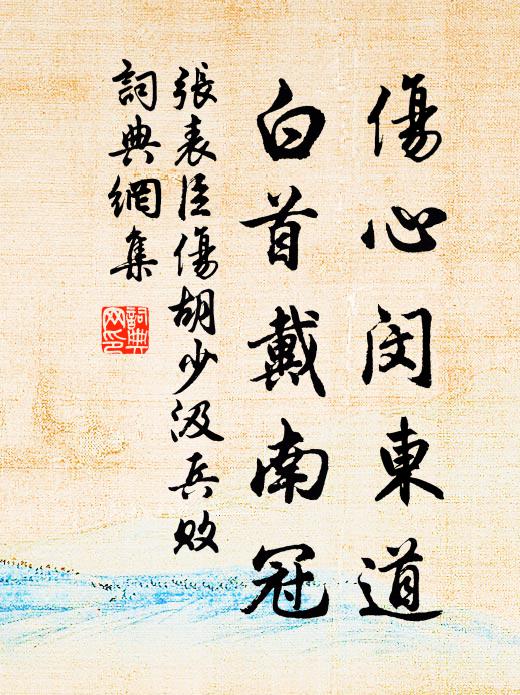 傷心闵東道
白首戴南冠
張表臣傷胡少汲兵敗
詞典網集
詞典网印